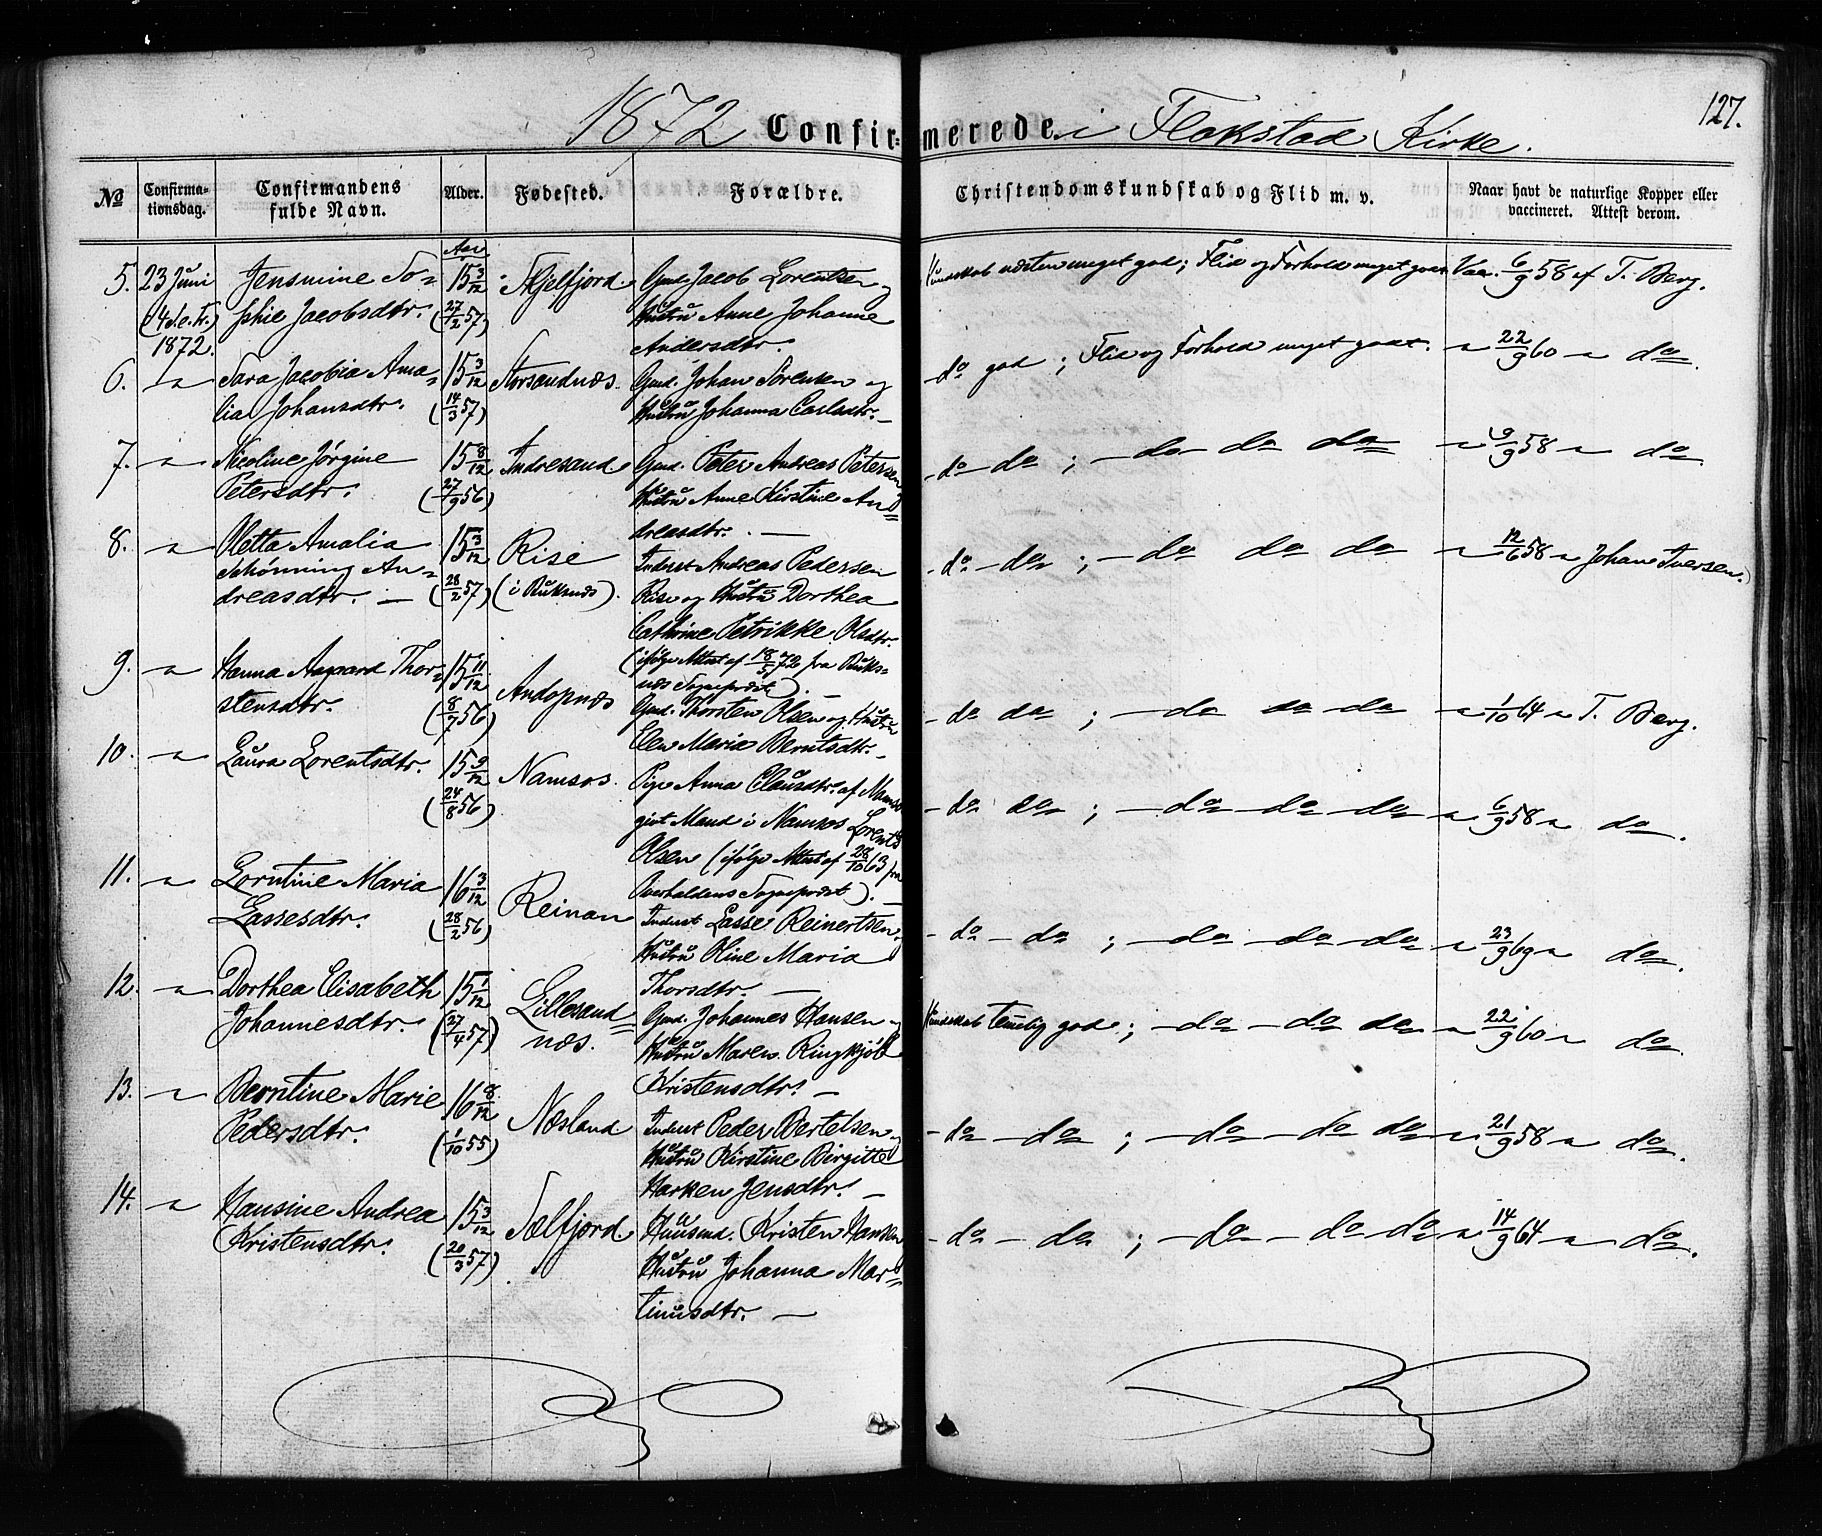 127.
1872 Confirmerede i Flakstad Kirke.
No
Confirmationsdag.
Confirmandens fulde Navn.
Alder.
Fødested.
Forældre.
Christendomskundskab og Flid m. v.
Naar havt de naturlige Kopper eller vaccineret. Attest derom.
Aar
5. 23 Juni Jensmine So= 15 3/12 Skjelfjord. Gmd. Jacob Lorentsen og Kundskab næsten meget god; Flid og Forhold meget godt Vac. 6/9 58 af T. Berg.
(4 S. e. Tr.) phie Jacobsdtr. (27/2 57) Hustru Anne Johanne
1872. Andersdtr.
6. " Sara Jacobia Ama= 15 3/12 Storsandnæs. Gmd. Johan Sørensen og do god; Flid og Forhold meget godt. " 22/9 60 " do.
lia Johansdtr. (14/3 57) Hustru Johanna Carlsdtr. —
7. " Nicoline Jørgine 15 8/12 Andresand Gmd. Peter Andreas Petersen do do; — do do do " 9/9 58 " do.
Petersdtr. (27/9 56) Hustru Anne Kirstine An=
dreasdtr. —
8. " Oletta Amalia 15 3/12 Rise Inderst Andreas Pedersen do — do; — do do do " 12/6 58 " Johan Iversen.
Schønning An= (i Buksnæs). Rise og Hustru Dorthea
dreasdtr. — (28/2 57) Cathrine Petrikke Olsdtr.
(ifølge Attest af 18/5 72 fra Buks=
næs Sogneprest). —
9. " Hanna Aagaard Thor= 15 11/12 Andopnæs Gmd. Thorsten Olsen og Hustru do do; — do do do " 1/10 64 " T. Berg.
stensdtr. (8/7 56) Elen Maria Berntsdtr. —
10. " Laura Lorentsdtr. 15 9/12 Namsos. Pige Anna Clausdtr. af do do; — do do do " 6/9 58 " do.
(24/8 56) givt Mand i Namsos Lorents
Olsen (ifølge Attest af 28/10 63 fra
Overhaldens Sogneprest). —
11. " Lorntine Maria 16 3/12 Reinan Inderst Lasse Reinertsen do — do; — do do do " 23/9 69 " do.
Lassesdtr. (28/2 56) Hustru Oline Maria
Thorsdtr. —
12. " Dorthea Elisabeth 15 1/12 Lillesand= Gmd. Johannes Hansen og Kundskab temelig god; — do — do do " 22/9 60 " do.
Johannesdtr. (27/4 57) næs. Hustru Maren Ringkjøb
Kristensdtr. —
13. " Berntine Marie 16 8/12 Næsland Inderst Peder Bertelsen og do — do; — do — do do " 21/9 58 " do.
Pedersdtr. (1/10 55) Hustru Kirstine Birgitte
Harken Jensdtr. —
14. " Hansine Andrea 15 3/12 Selfjord Huusmd. Kristen Hansen do — do; — do — do do " 14/9 64 " do.
Kristensdtr. (20/3 57) Hustru Johanna Mar=
tinusdtr. —